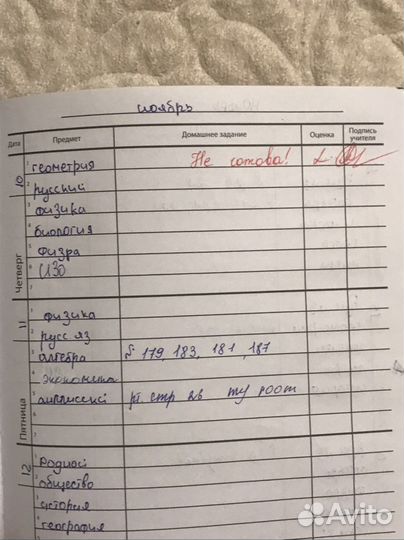 ноябрь
Дата Предмет Домашнее задание Оценка Подпись учителя
Четверг 10
1 геометрия Не готова! 2
2 русский
3 физика
4 биология
5 физра
6 ИЗО
7
Пятница 11
1 физика
2 русс яз
3 алгебра № 179, 183, 181, 187
4 экономика
5 английский рт. стр 26 my room
6
7
12
1 Родной
2 общество
3 история
4 география
5
Avito